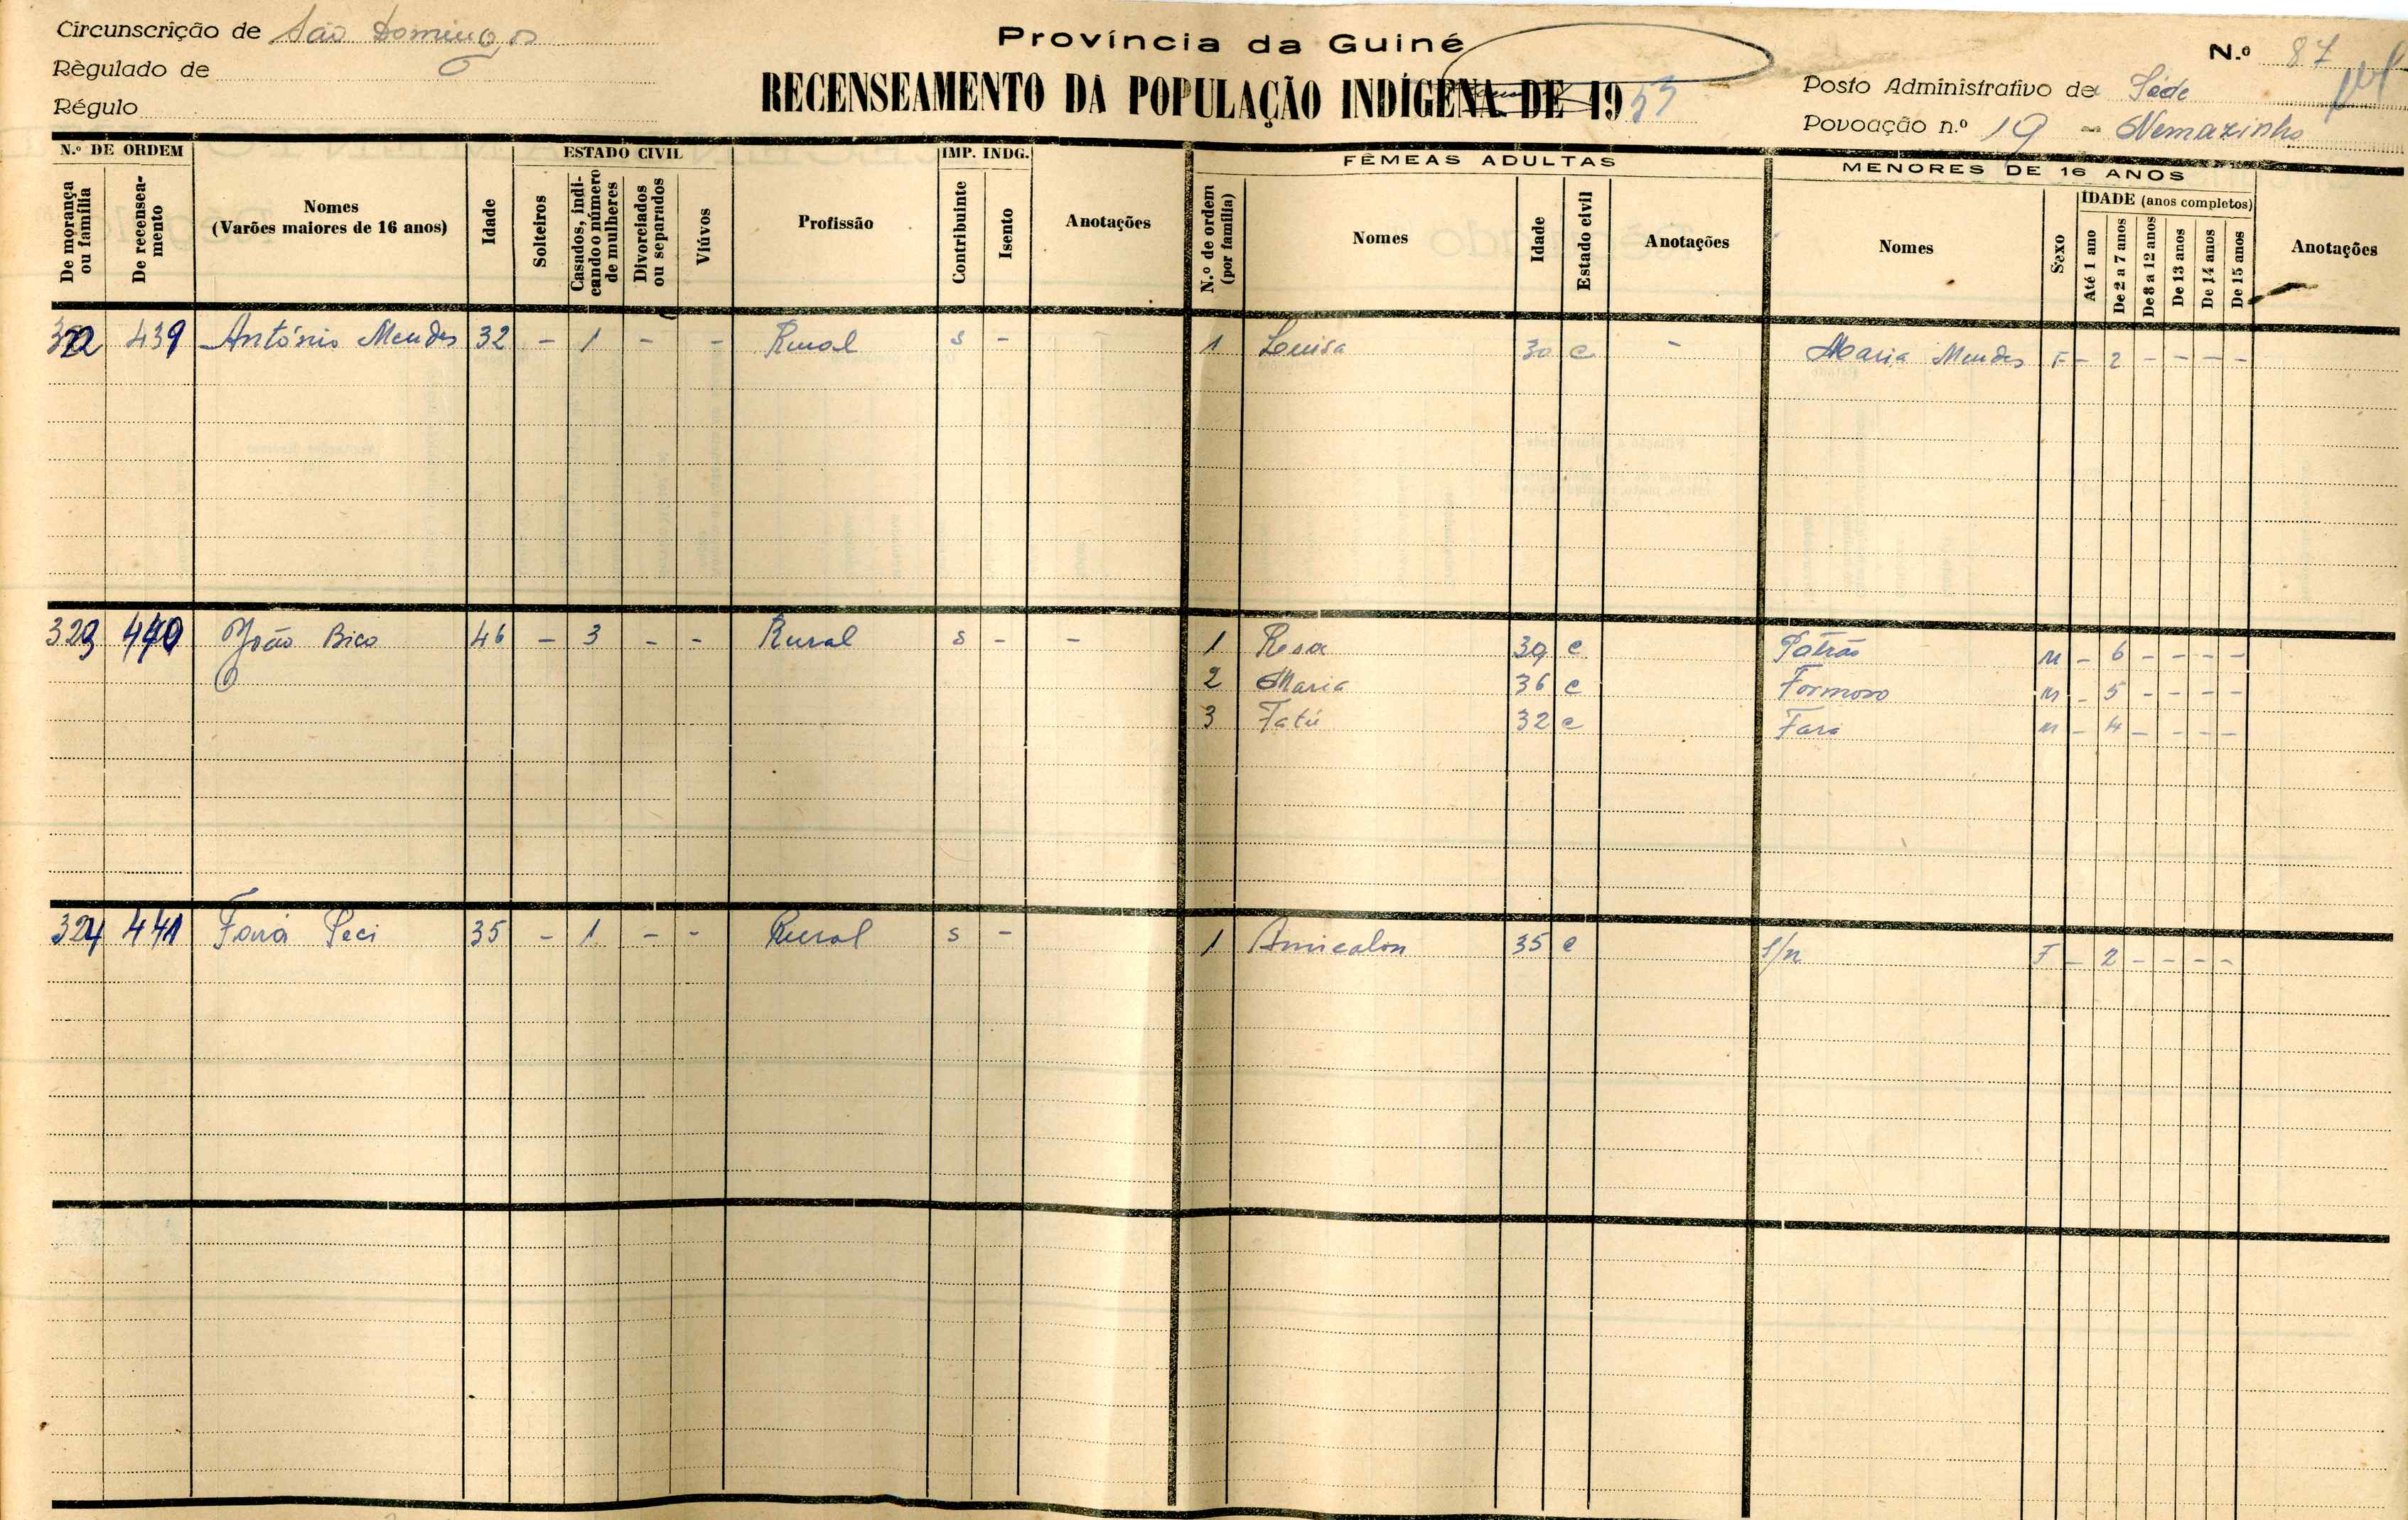 Circunscrição de São Domingos
Règulado de
Régulo
Província da Guiné
RECENSEAMENTO DA POPULAÇÃO INDÍGENA DE 1955
N.º 87
Posto Administrativo de Séde
Povoação n.º 19 - Nemazinho
N.º DE ORDEM
De morança ou família
De recenseamento
Nomes
(Varões maiores de 16 anos)
Idade
ESTADO CIVIL
Solteiros
Casados, indicando o número de mulheres
Divorciados ou separados
Viúvos
Profissão
IMP. INDG.
Contribuinte
Isento
Anotações
FÊMEAS ADULTAS
N.º de ordem (por família)
Nomes
Idade
Estado civil
Anotações
MENORES DE 16 ANOS
Nomes
Sexo
IDADE (anos completos)
Até 1 ano
De 2 a 7 anos
De 8 a 12 anos
De 13 anos
De 14 anos
De 15 anos
Anotações
322 439 António Mendes 32 - 1 - - Rural s - 1 Luisa 30 c - Maria Mendes F - 2 - - - -
323 440 João Bico 46 - 3 - - Rural s - - 1 Rosa 39 c Patrão M - 6 - - - -
2 Maria 36 c Formoso M - 5 - - - -
3 Fatú 32 c Fara M - 4 - - - -
324 441 Fará Peci 35 - 1 - - Rural s - 1 Amicalon 35 c S/n F - 2 - - - -